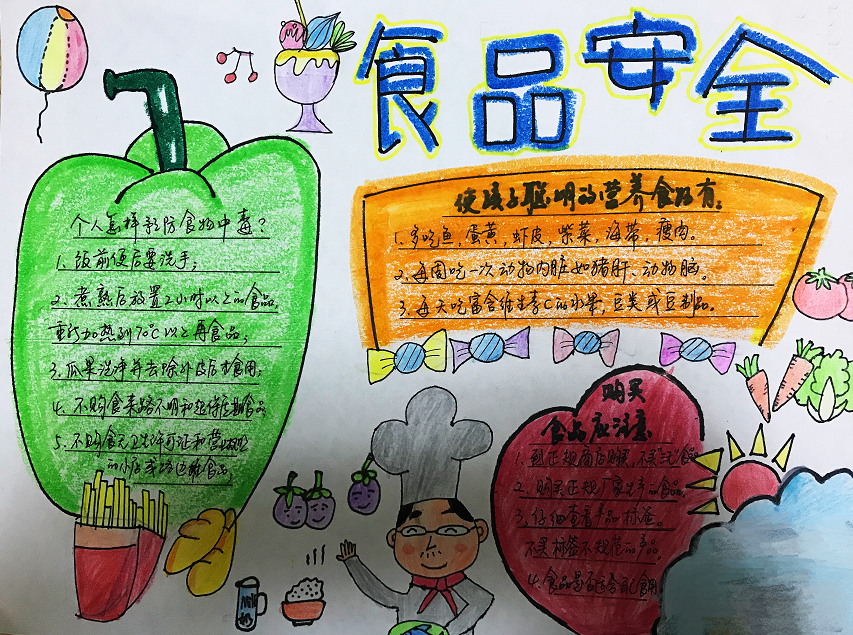 食品安全
个人怎样预防食物中毒?
1. 饭前便后要洗手;
2. 煮熟后放置2小时以上的食品,
重新加热到70℃以上再食品;
3. 瓜果洗净并去除外皮后才食用;
4. 不购食来路不明和超保质期食品
5. 不购食无卫生许可证和营业
的小店或路边摊食品
使孩子聪明的营养食物有:
1. 多吃鱼,蛋黄,虾皮,紫菜,海带,瘦肉。
2. 每周吃一次动物内脏如猪肝、动物脑。
3. 每天吃富含维生素C的水果,豆类或豆制品。
购买
食品应注意
1. 到正规商店购买,不买"三无"食品
2. 购买正规厂家生产的食品,
3. 仔细查看产品标签。
不买标签不规范的产品,
4. 食品是否适合自己食用